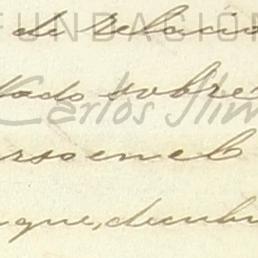 FUNDACIÓN
de relacio
tado sobre
Carlos Slim
erso en el
que, decubr